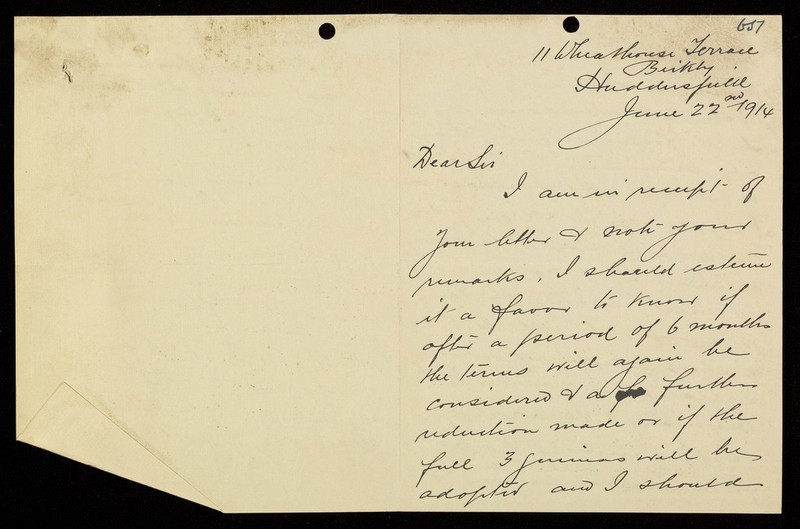 657
11 Wheathouse Terrace
Birkby
Huddersfield
June 22nd 1914
Dear Sir
I am in receipt of
your letter & note your
remarks. I should esteem
it a favor to know if
after a period of 6 months
the terms will again be
considered & a further
reduction made or if the
full 3 guineas will be
adopted and I should